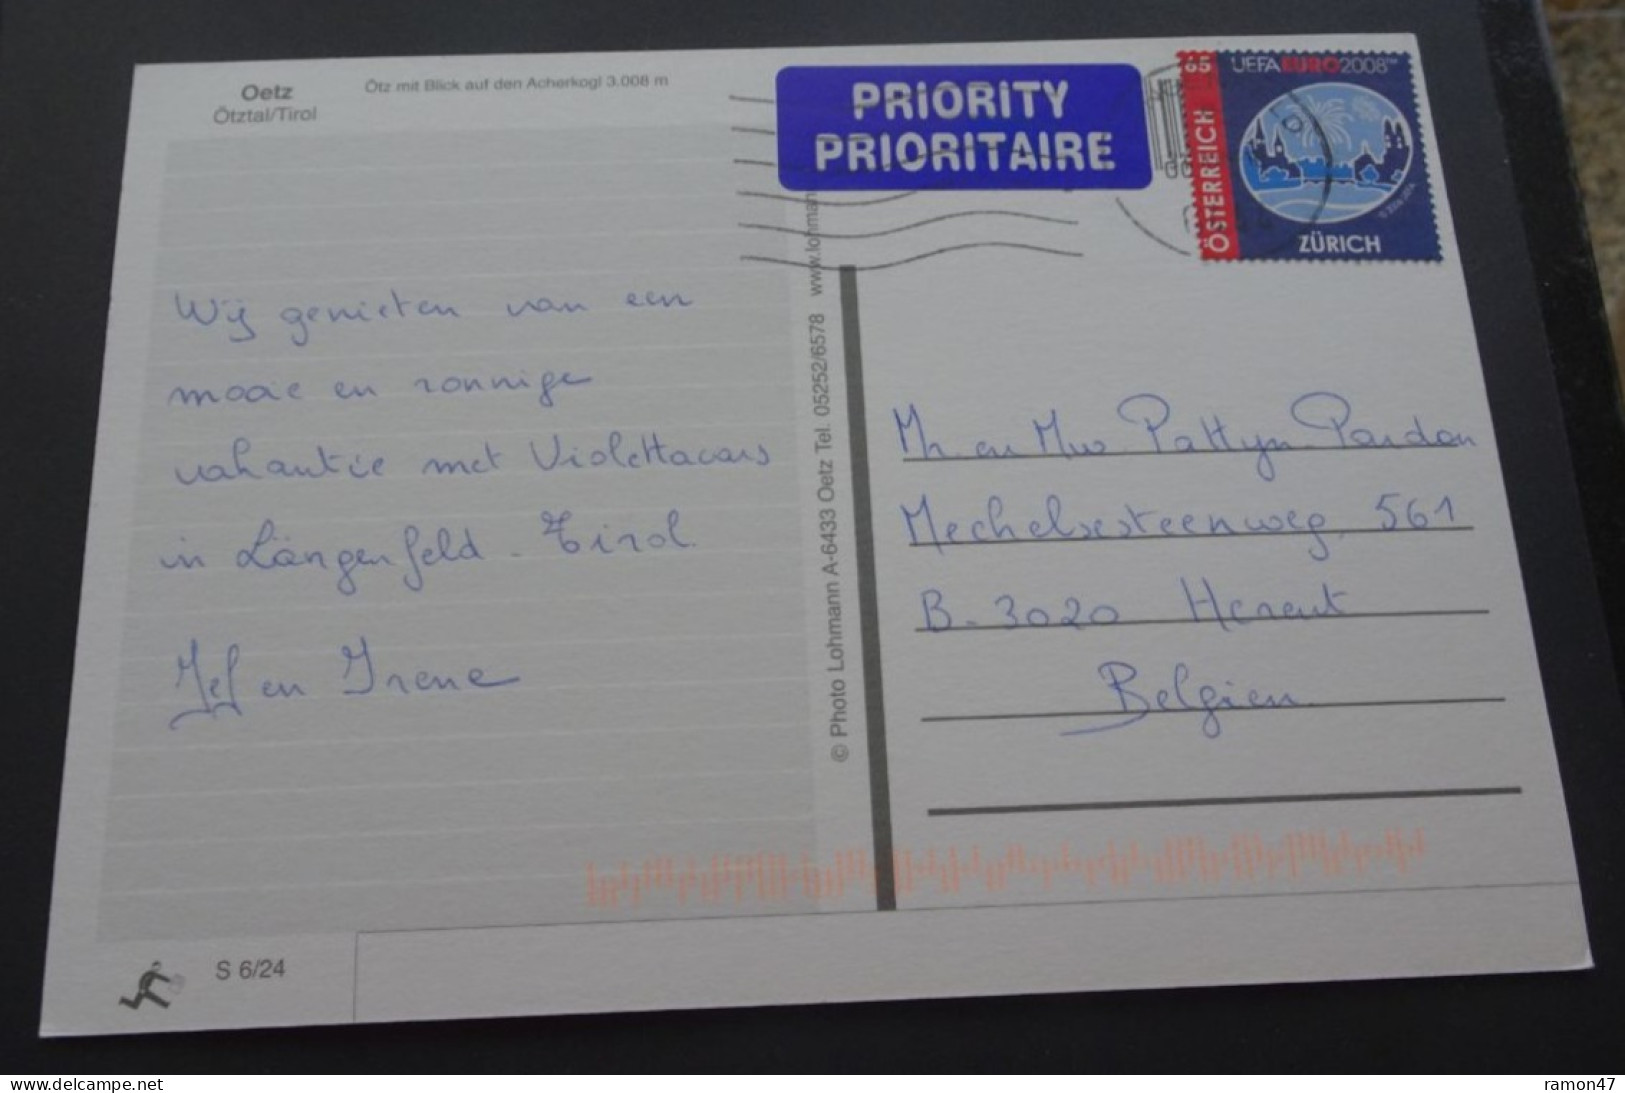 Oetz
Ötztal/Tirol
Ötz mit Blick auf den Acherkogl 3.008 m
PRIORITY
PRIORITAIRE
65
UEFA EURO2008™
ÖSTERREICH
ZÜRICH
Wij genieten van een
mooie en zonnige
vakantie met Violettacars
in Längenfeld - Tirol.
Jef en Irene
© Photo Lohmann A-6433 Oetz Tel. 05252/6578 www.lohmann
Mr en Mw Pattyn Pardon
Mechelsesteenweg, 561
B. 3020 Herent
Belgien
S 6/24
www.delcampe.net
ramon47